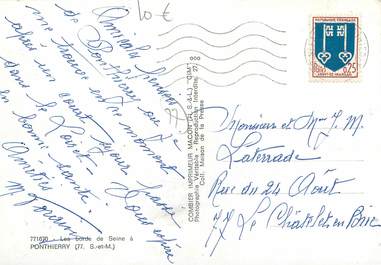 10 €
Amicales pensées
de Ponthierry où je
me trouve en ce moment
après un court séjour passé
dans le Loiret. Vous espère
en bonne santé.
Amitiés
REPUBLIQUE FRANÇAISE
0,25
POSTES
MONT-DE-MARSAN
Monsieur et Mme J. M.
Laterrade
Rue du 24 Août
77 Le Châtelet en Brie
COMBIER IMPRIMEUR MACON (S.-&-L.) "CIM"
Photographie Véritable - Reproduction Interdite
Coll. Maison de la Presse
771670 - Les bords de Seine à
PONTHIERRY (77. S.-et-M.)